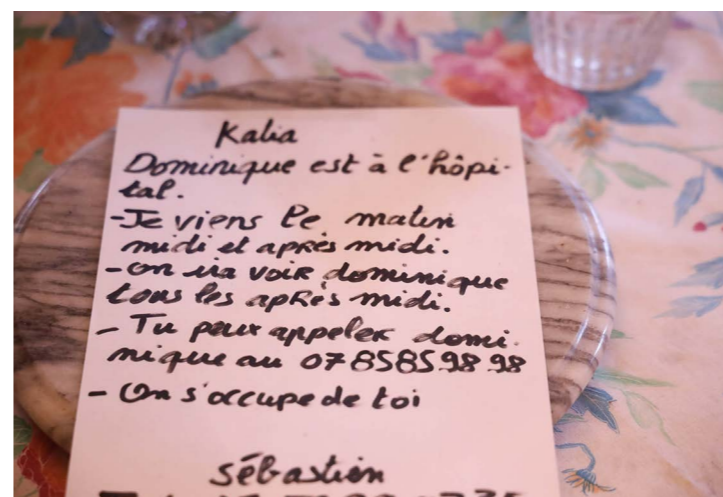 Kalia
Dominique est à l'hôpi-
tal.
- Je viens le matin
midi et après midi.
- on ira voir dominique
tous les après midi.
- Tu peux appeler domi-
nique au 07 85 85 98 98
- On s'occupe de toi
Sébastien